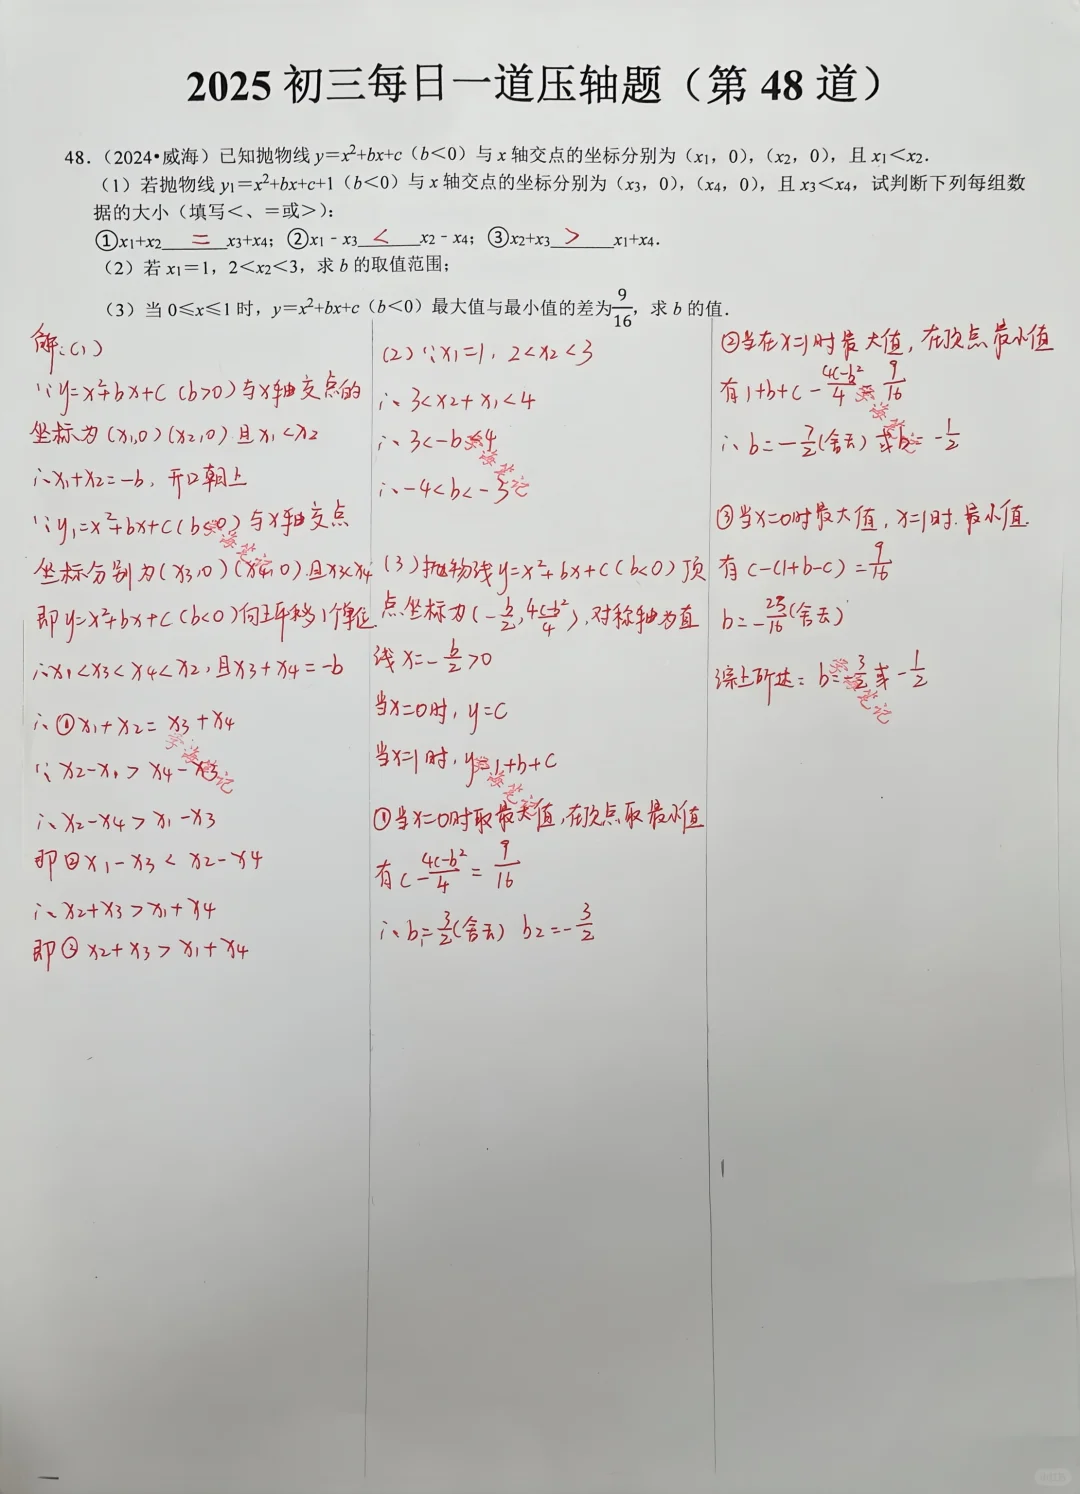 2025 初三每日一道压轴题（第 48 道）
48.（2024•威海）已知抛物线 y＝x²+bx+c（b＜0）与 x 轴交点的坐标分别为（x₁，0），（x₂，0），且 x₁＜x₂．
（1）若抛物线 y₁＝x²+bx+c+1（b＜0）与 x 轴交点的坐标分别为（x₃，0），（x₄，0），且 x₃＜x₄，试判断下列每组数
据的大小（填写＜、＝或＞）：
①x₁+x₂ = x₃+x₄；②x₁﹣x₃ < x₂﹣x₄；③x₂+x₃ > x₁+x₄．
（2）若 x₁＝1，2＜x₂＜3，求 b 的取值范围；
（3）当 0≤x≤1 时，y＝x²+bx+c（b＜0）最大值与最小值的差为9/16，求 b 的值．
解:(1)
∵y=x²+bx+c (b>0)与x轴交点的
坐标为(x₁,0)(x₂,0)且x₁<x₂
∴x₁+x₂=-b, 开口朝上
∵y₁=x²+bx+c(b<0)与x轴交点
坐标分别为(x₃,0)(x₄,0)且x₃<x₄
即y=x²+bx+c(b<0)向上平移1个单位
∴x₁<x₃<x₄<x₂,且x₃+x₄=-b
∴①x₁+x₂=x₃+x₄
∵x₂-x₁>x₄-x₃
∴x₂-x₄>x₁-x₃
即②x₁-x₃<x₂-x₄
∴x₂+x₃>x₁+x₄
即③x₂+x₃>x₁+x₄
(2)∵x₁=1, 2<x₂<3
∴3<x₂+x₁<4
∴3<-b<4
∴-4<b<-3
(3)抛物线y=x²+bx+c(b<0)顶
点坐标为(-b/2,4c-b²/4),对称轴为直
线x=-b/2>0
当x=0时,y=c
当x=1时,y=1+b+c
①当x=0时取最大值,在顶点取最小值
有c-4c-b²/4=9/16
∴b₁=3/2(舍去) b₂=-3/2
②当在x=1时最大值,在顶点最小值
有1+b+c-4c-b²/4=9/16
∴b=-7/2(舍去)或b=-1/2
③当x=0时最大值,x=1时.最小值.
有c-(1+b-c)=9/16
b=-25/16(舍去)
综上所述:b=-3/2或-1/2
学海笔记
学海笔记
学海笔记
学海笔记
学海笔记
学海笔记
小红书